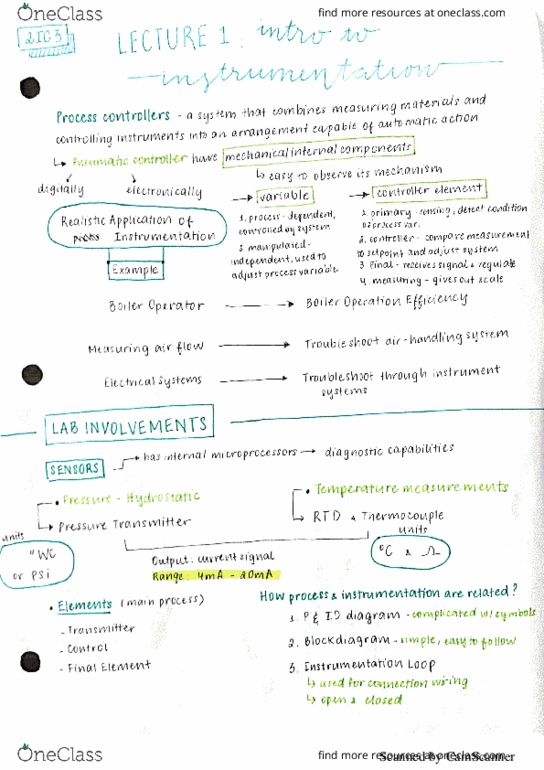 OneClass
find more resources at oneclass.com
2IC3
LECTURE 1: intro to
instrumentation
Process controllers - a system that combines measuring materials and
controlling instruments into an arrangement capable of automatic action
↳ Pneumatic controller have mechanical internal components
↳ easy to observe its mechanism
digitally
electronically
→ variable
→ controller element
Realistic Application of
Instrumentation
Example
1. process - dependent,
controlled by system
2. manipulated -
independent, used to
adjust process variable
1. primary - sensing, detect condition
of process var.
2. controller - compare measurement
to setpoint and adjust system
3. Final - receives signal & regulate
4. measuring - gives out scale
Boiler Operator → Boiler Operation Efficiency
Measuring air flow → Troubleshoot air-handling system
Electrical Systems → Troubleshoot through instrument
systems
LAB INVOLVEMENTS
SENSORS → has internal microprocessors → diagnostic capabilities
• Pressure - Hydrostatic
↳ Pressure Transmitter
• Temperature measurements
↳ RTD & Thermocouple
units
"WC
or PSi
units
°C & Ω
Output: current signal
Range: 4mA - 20mA
• Elements (main process)
- Transmitter
- Control
- Final Element
How process & instrumentation are related?
1. P & ID diagram - complicated w/ symbols
2. Block diagram - simple, easy to follow
3. Instrumentation Loop
↳ used for connection wiring
↳ open & closed
OneClass
find more resources at oneclass.com
Scanned by CamScanner